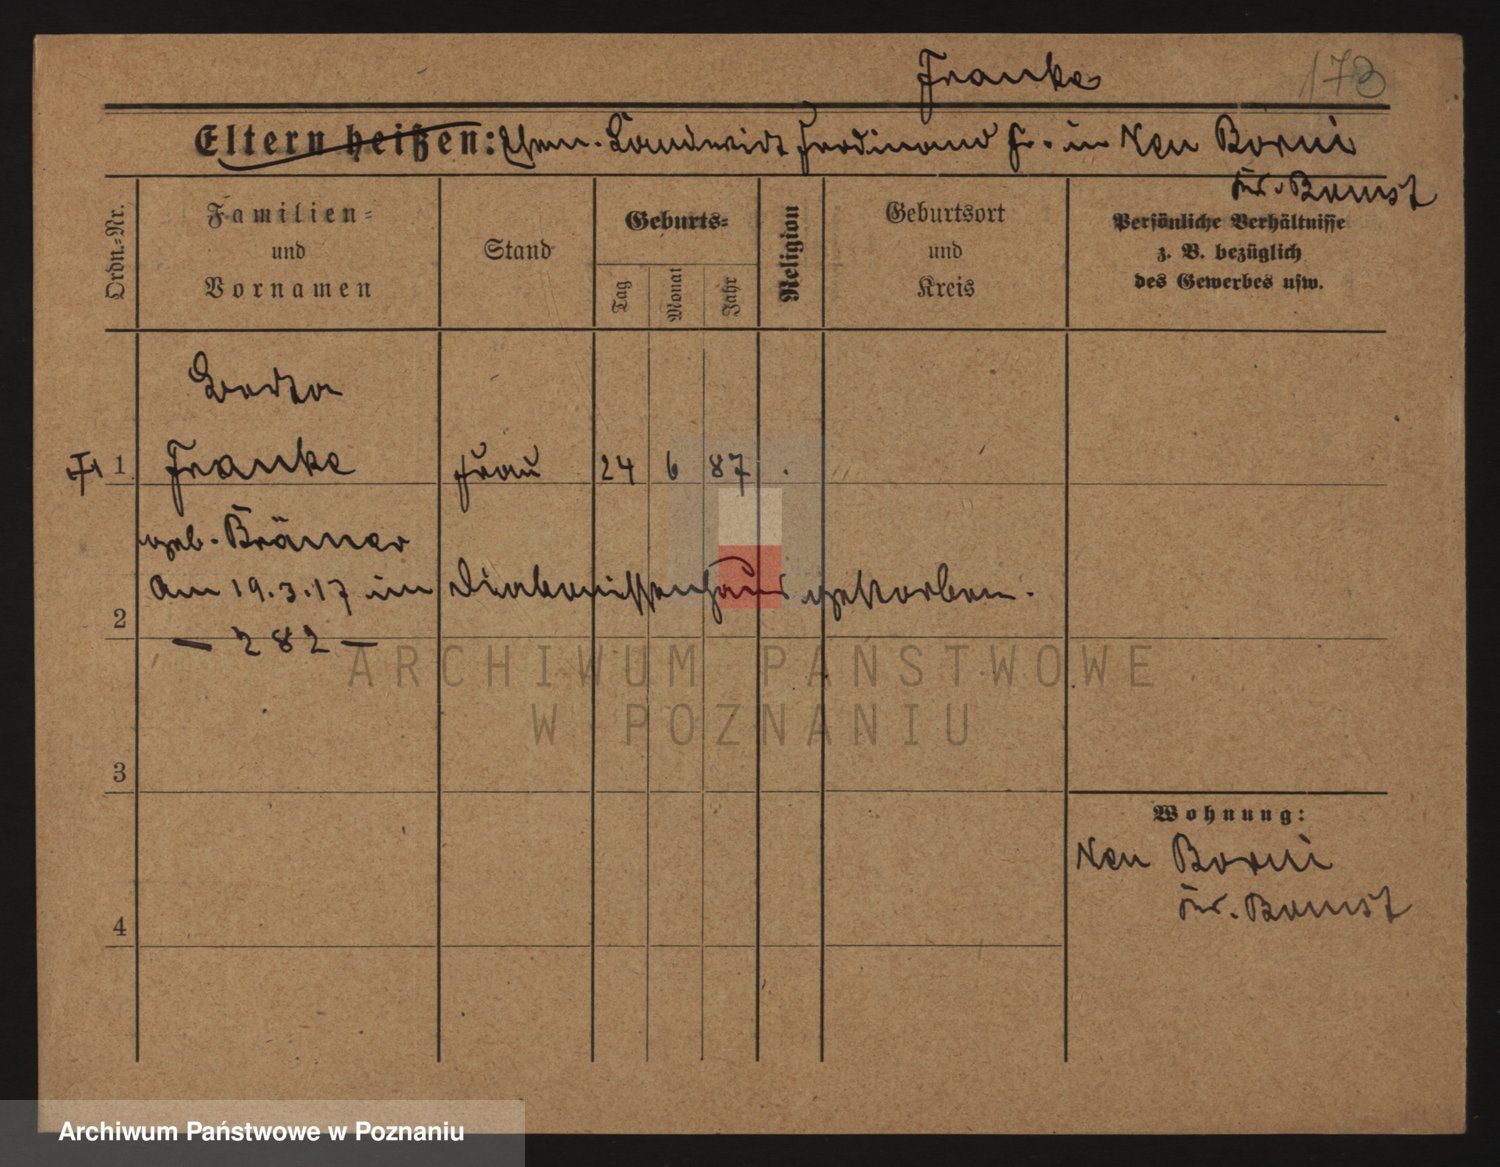 Franke
173
Eltern heißen: Ehem. Landwirt Ferdinand Fr. in Neu Borui
Kr. Bomst
Ordn.-Nr.
Familien-
und
Vornamen
Stand
Geburts-
Tag
Monat
Jahr
Religion
Geburtsort
und
Kreis
Persönliche Verhältnisse
z. B. bezüglich
des Gewerbes usw.
1 Franke Frau 24 6 87
geb. Brämer
Am 19.3.17 im Diakonissenhaus gestorben.
2
— 282 —
ARCHIWUM PAŃSTWOWE
W POZNANIU
3
Wohnung:
Neu Borui
Kr. Bomst
4
Archiwum Państwowe w Poznaniu